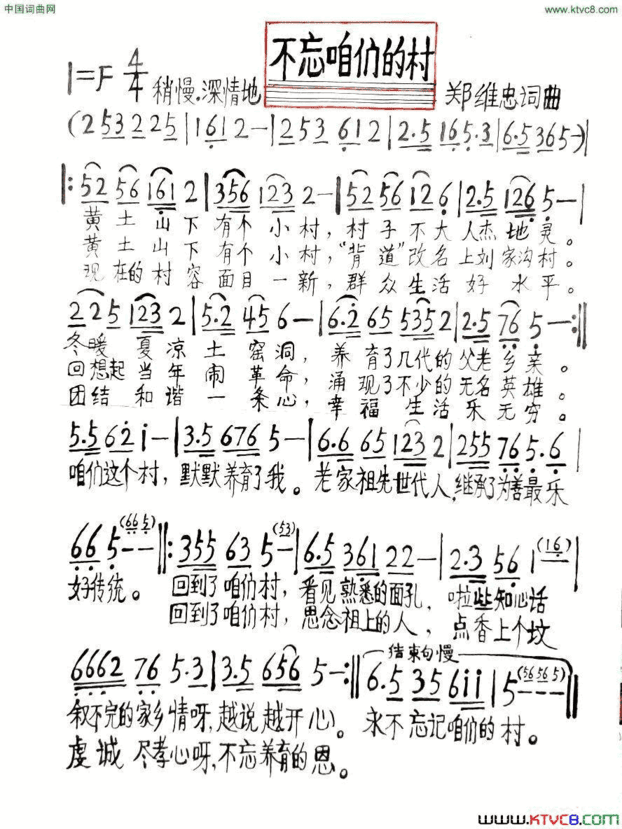 中国词曲网
www.ktvc8.com
不忘咱们的村
1=F 4/4 稍慢.深情地
郑维忠词曲
(253 225 | 1612- | 253 612 | 2.5 165.3 | 6.5365-) |
|: 52 56 161 2 | 356 123 2- | 52 56 126 | 2.5 126 5- |
黄土山下有个小村，村子不大人杰地灵。
黄土山下有个小村，“背道”改名上刘家沟村。
现在的村容面目一新，群众生活好水平。
225 123 2 | 5.2 45 6- | 6.2 65 535 2 | 2.5 76 5- :||
冬暖夏凉土窑洞，养育了几代的父老乡亲。
回想起当年闹革命，涌现了不少的无名英雄。
团结和谐一条心，幸福生活乐无穷。
5.5 62 i- | 3.5 676 5- | 6.6 65 123 2 | 255 76 5.6 |
咱们这个村，默默养育了我。老家祖先世代人，继承了为善最乐
66 5-- (665) ||: 355 63 5- (53) | 6.5 361 22- | 2.3 56 1 (16) |
好传统。回到了咱们村，看见熟悉的面孔，啦些知心话
回到了咱们村，思念祖上的人，点香上个坟
6662 76 5.3 | 3.5 656 5- :|| 结束句慢 6.5 35 6ii | 5--- (56 56 5) ||
叙不完的家乡情呀，越说越开心。永不忘记咱们的村。
虔诚尽孝心呀，不忘养育的恩。
www.KTVC8.com